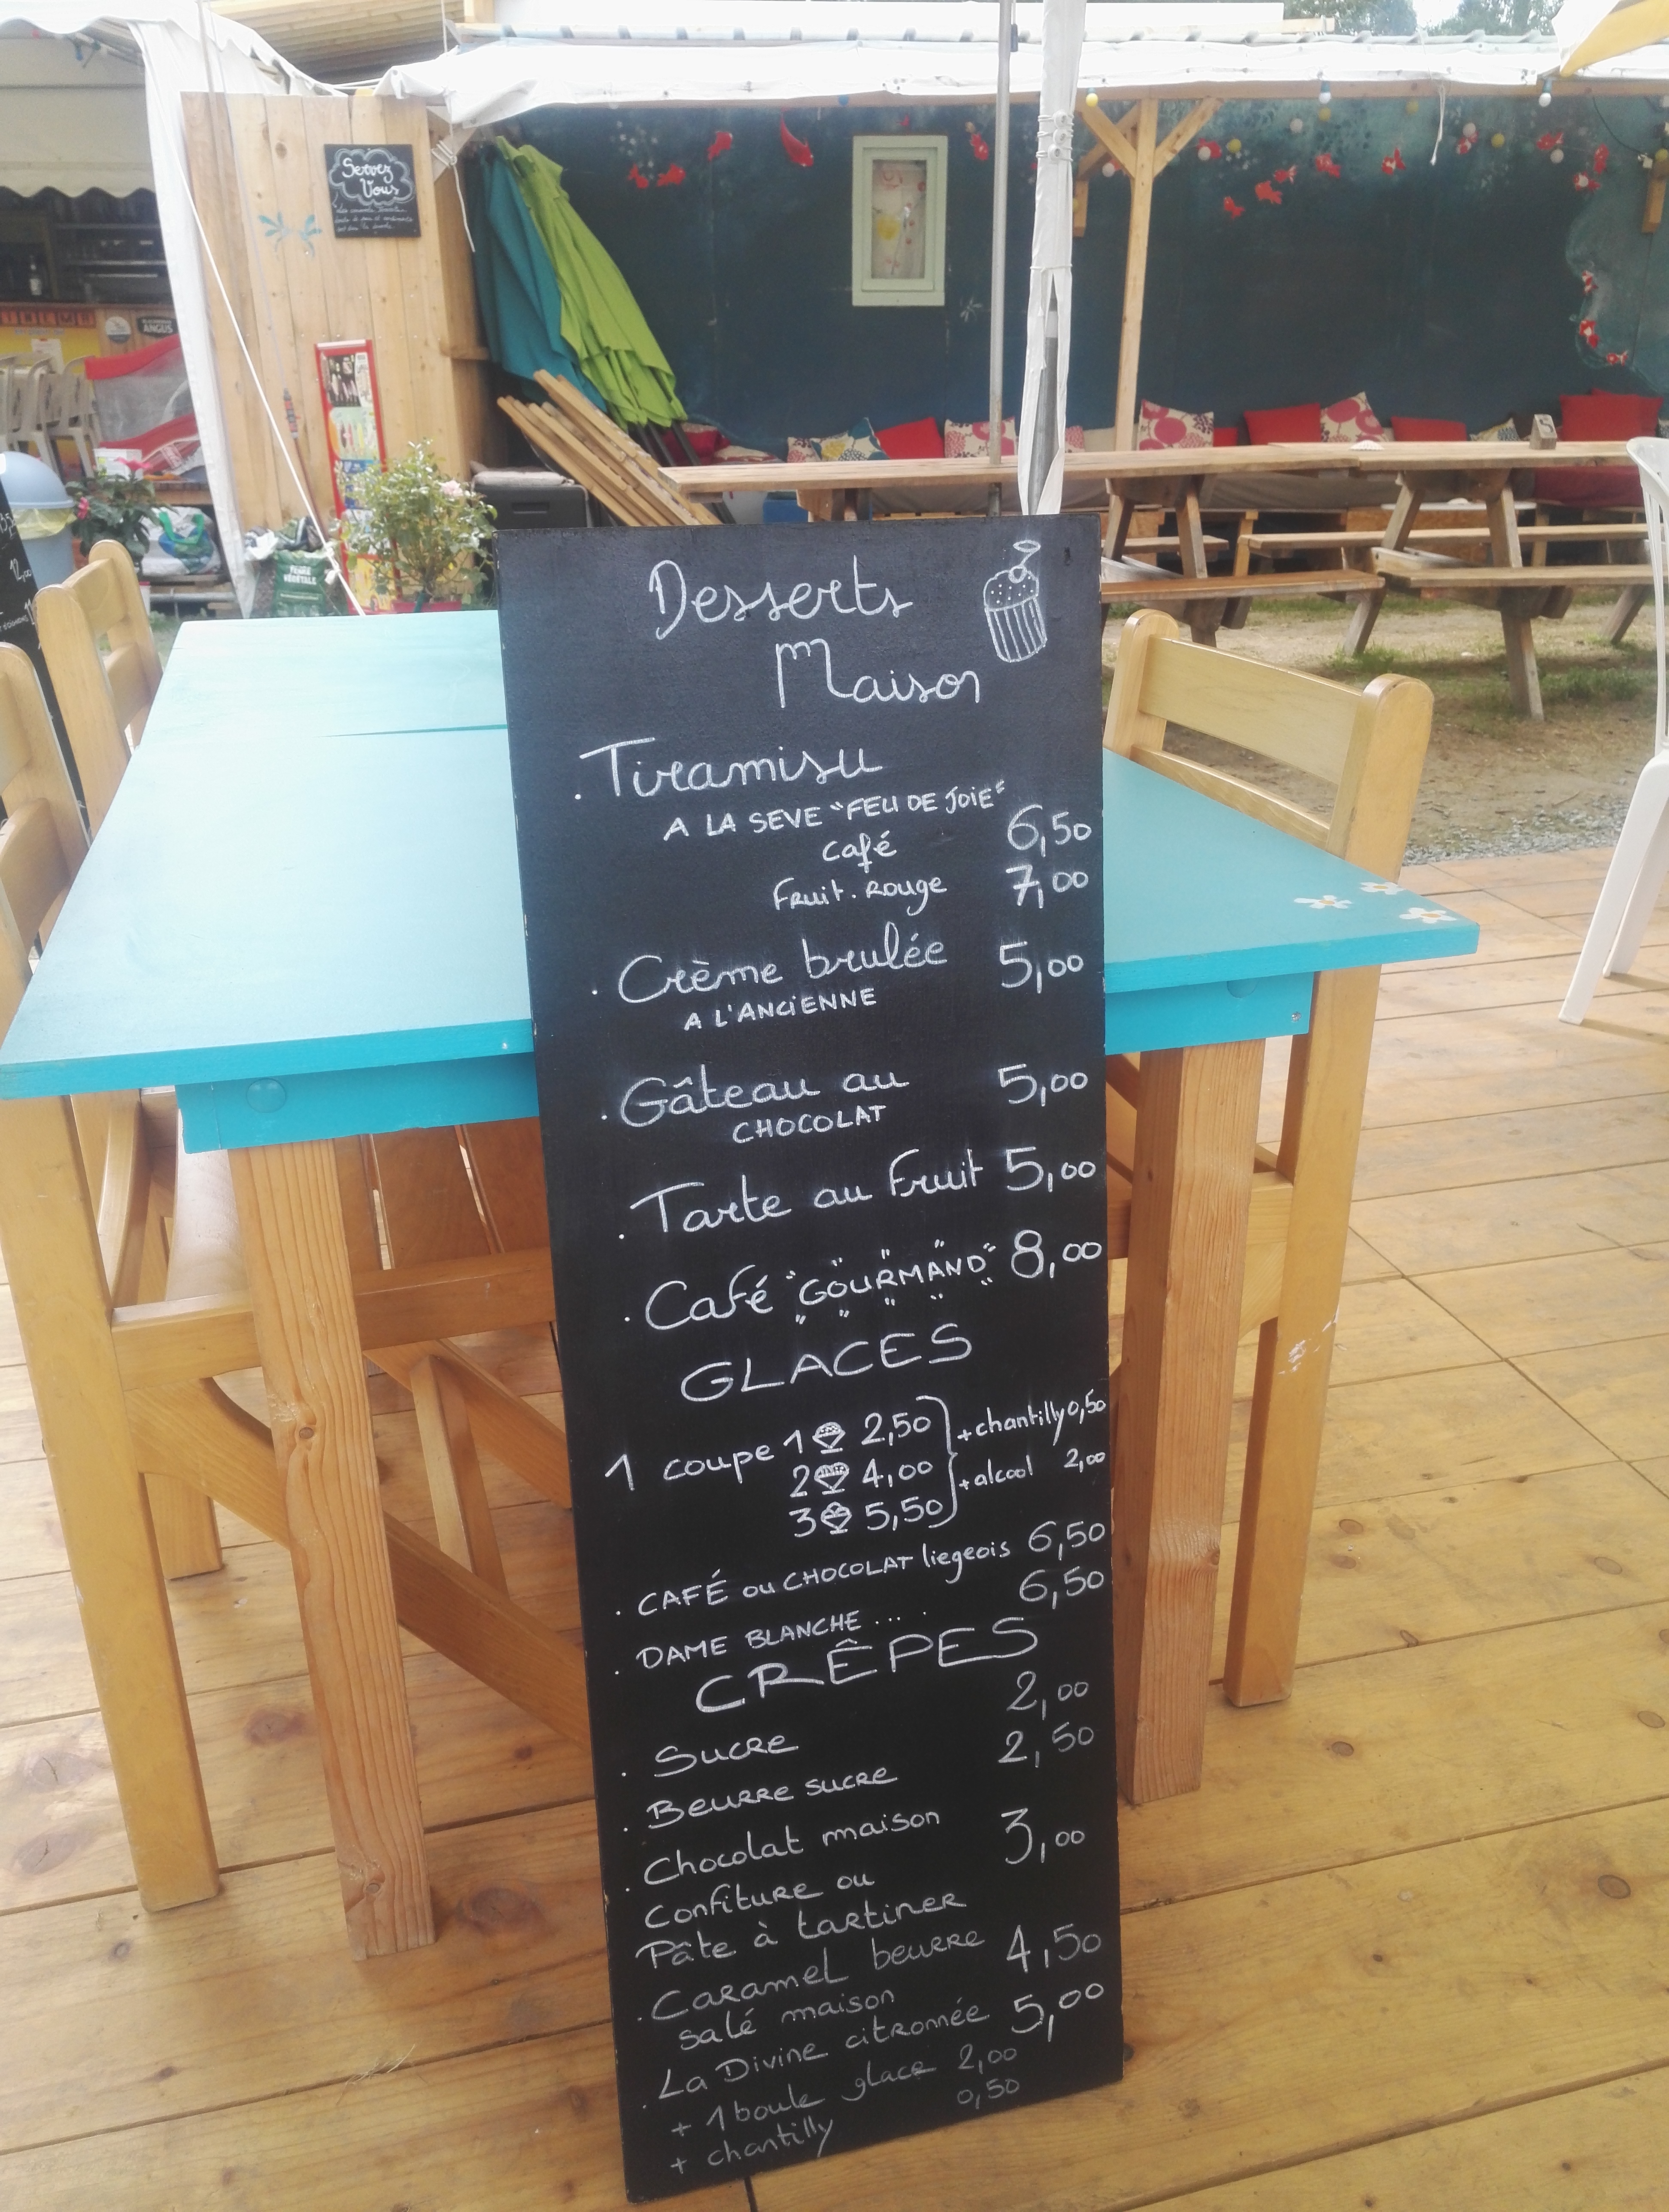 Servez
Vous
ANGUS
TERRE
VÉGÉTALE
12,00
Desserts
Maison
. Tiramisu
A LA SEVE "FEU DE JOIE"
café 6,50
Fruit.rouge 7,00
. Crème brulée 5,00
A L'ANCIENNE
. Gâteau au 5,00
CHOCOLAT
. Tarte au Fruit 5,00
. Café "GOURMAND" 8,00
GLACES
1 coupe 1 2,50 + chantilly 0,50
2 4,00 + alcool 2,00
3 5,50
. CAFÉ ou CHOCOLAT liegeois 6,50
. DAME BLANCHE .... 6,50
CRÊPES
. Sucre 2,00
. Beurre sucre 2,50
. Chocolat maison
Confiture ou 3,00
Pâte à tartiner
. Caramel beurre 4,50
salé maison
. La Divine citronnée 5,00
+ 1 boule glace 2,00
+ chantilly 0,50